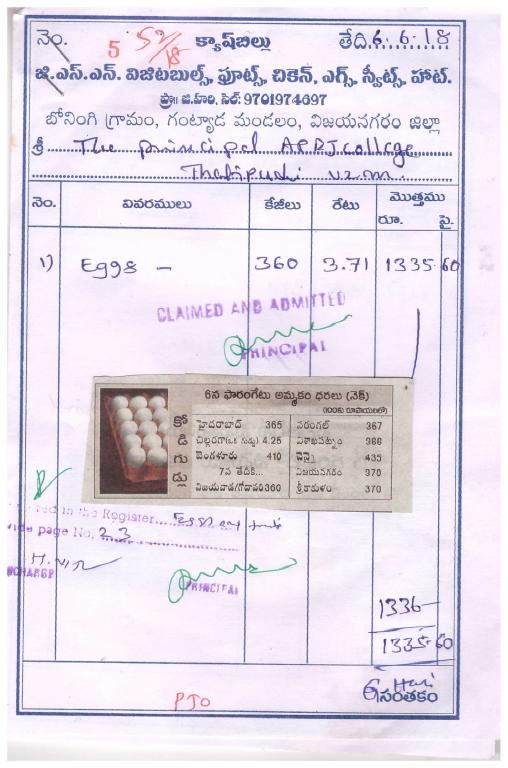 నెం. 5 52/18 క్యాష్‌బిల్లు తేది: 6.6.18
జి.ఎస్.ఎన్. విజిటబుల్స్, ఫ్రూట్స్, చికెన్, ఎగ్స్, స్వీట్స్, హాట్.
ప్రొ॥ జి.హరి, సెల్: 9701974697
బోనంగి గ్రామం, గంట్యాడ మండలం, విజయనగరం జిల్లా
శ్రీ The principal APRJ college
Thatipudi vzm.
నెం. వివరములు కేజీలు రేటు మొత్తము
రూ. పై.
1) Eggs – 360 3.71 1335 60
CLAIMED AND ADMITTED
PRINCIPAL
6న ఫారంగేటు అమ్మకం ధరలు (నెక్)
(100కు రూపాయలలో)
కోడిగుడ్లు
హైదరాబాద్ 365 వరంగల్ 367
చిల్లరగా(ఒక గుడ్డు) 4.25 విశాఖపట్నం 366
బెంగళూరు 410 చెన్నై 435
7వ తేదికి... విజయనగరం 370
విజయవాడ/గోదావరి 360 శ్రీకాకుళం 370
in the Register
page No. 23
PRINCIPAL
1336
1335-60
G Hari
సంతకం
PTO